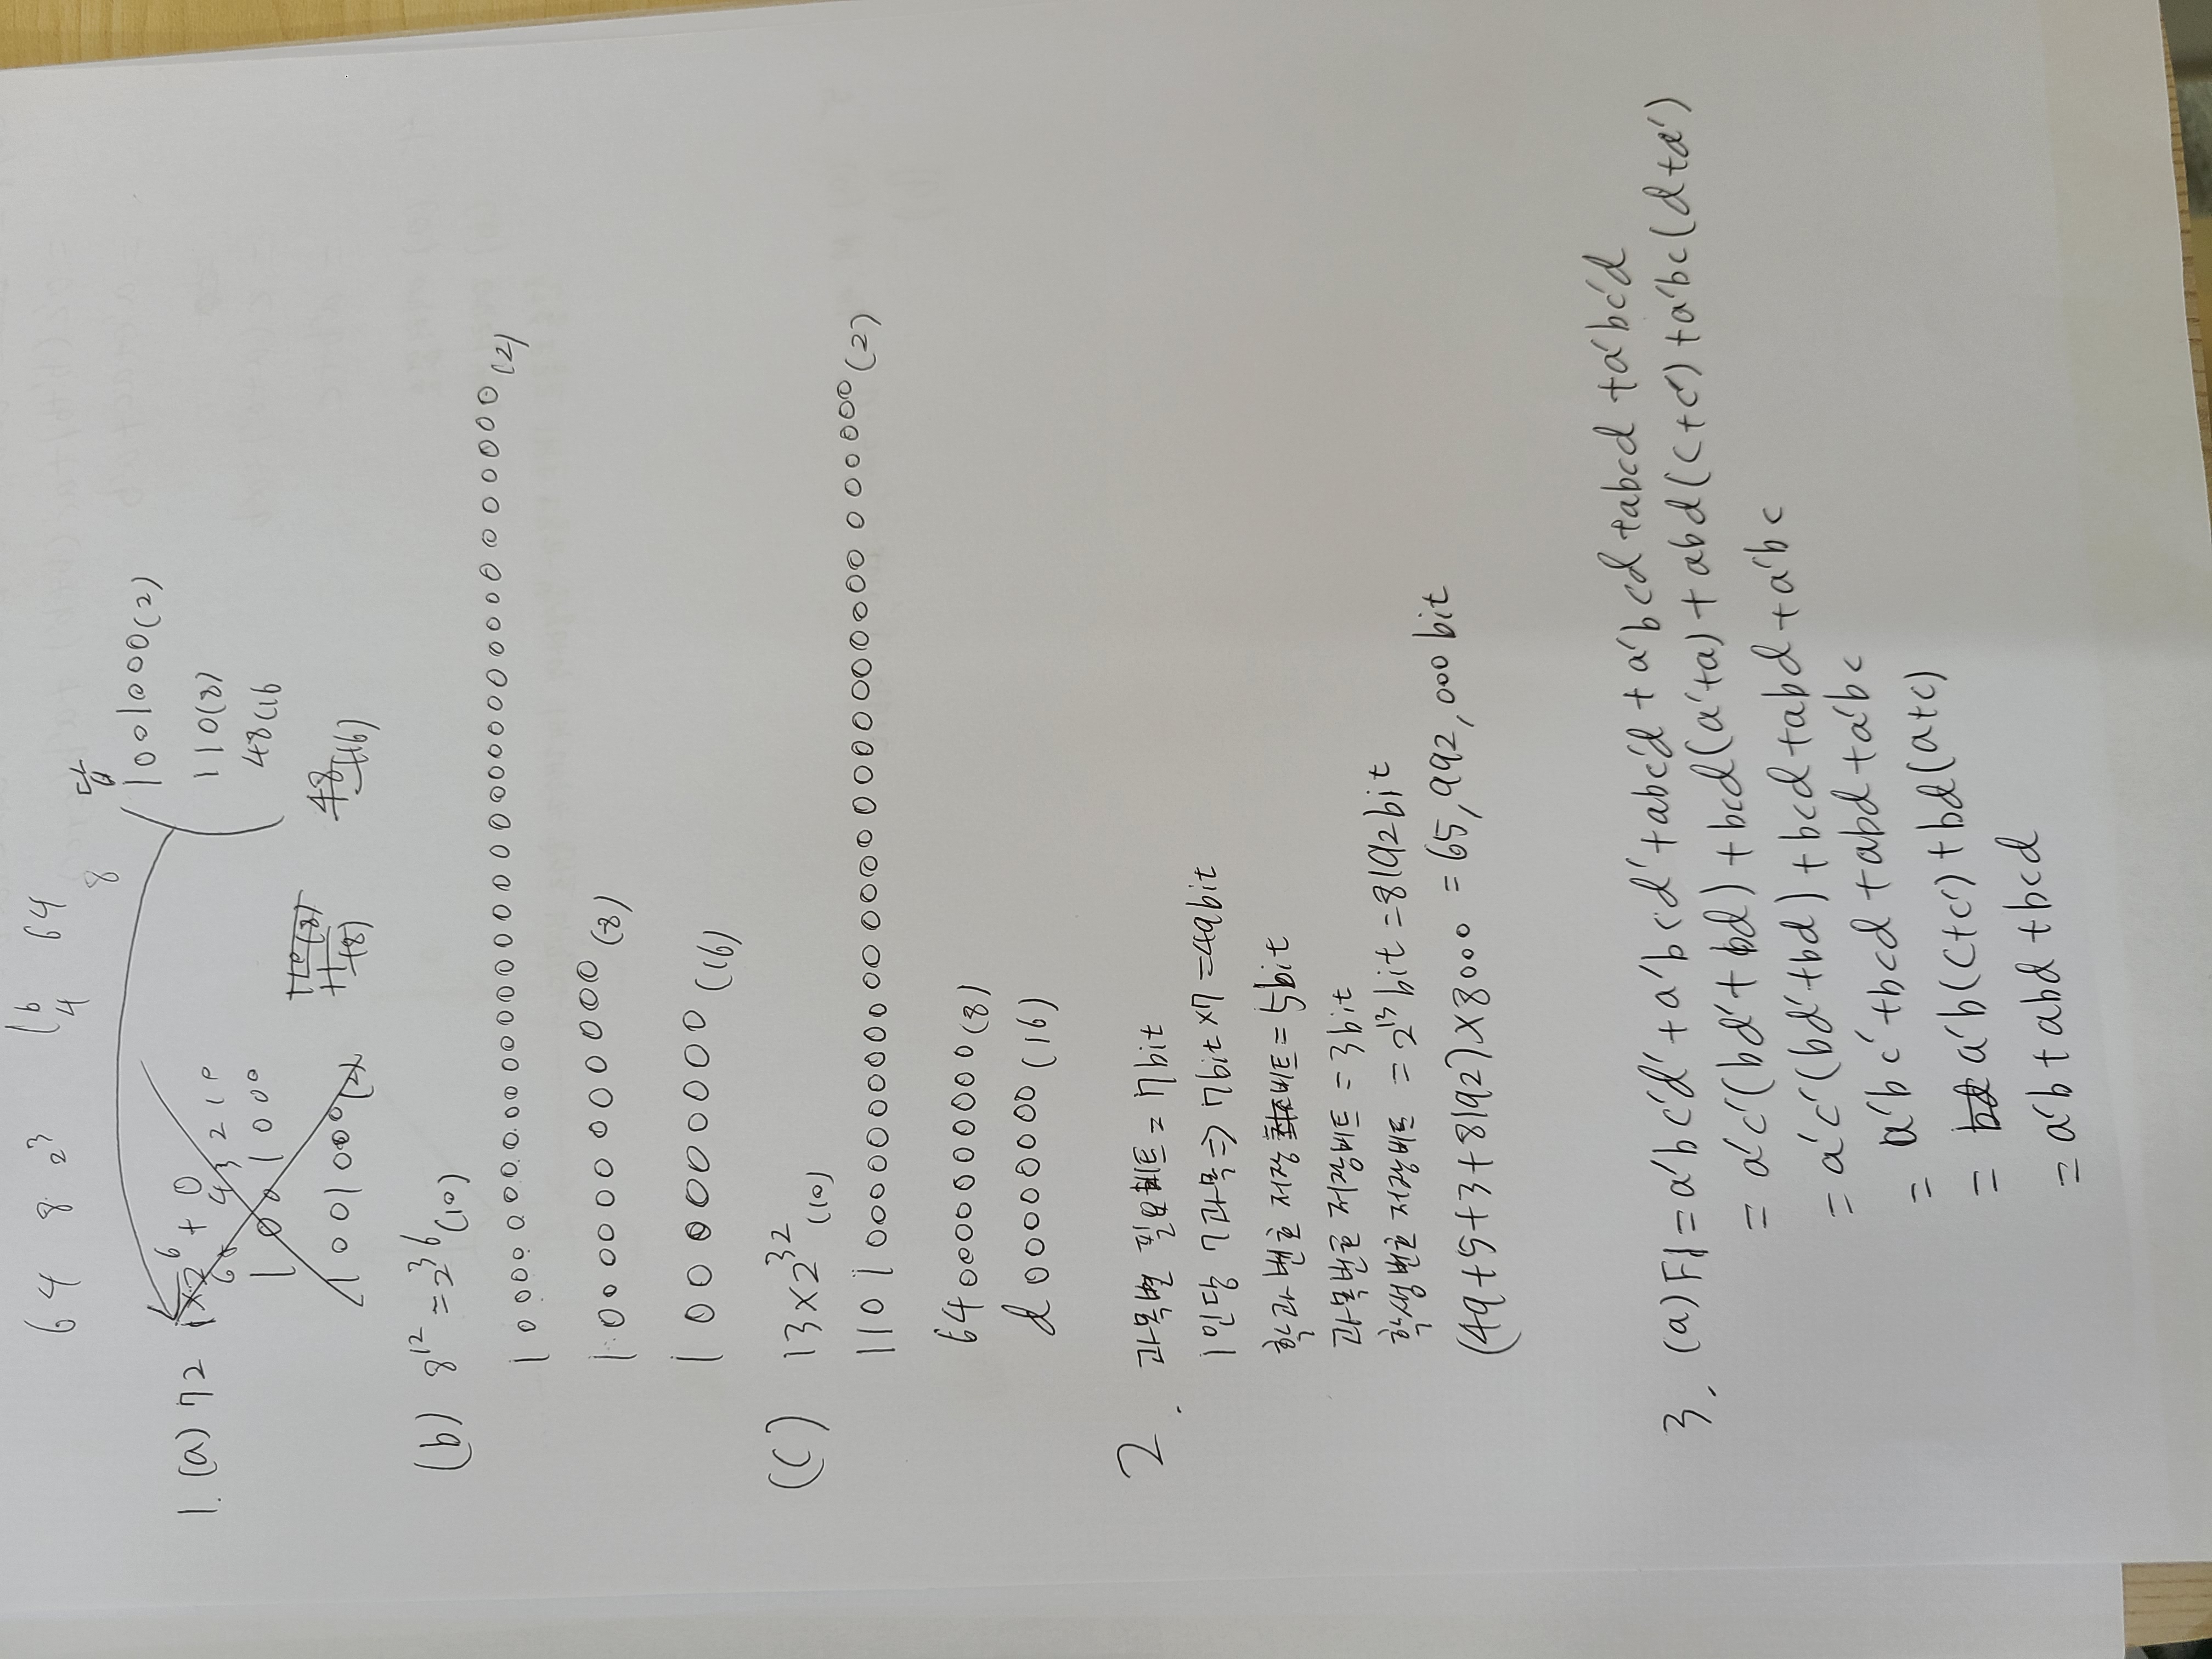 64 8 2³ 16 64
4
8
답
1. (a) 72 1×2⁶ + 0
6 5 4 3 2 1 0
1 0 0 1 0 0 0
1001000(2)
1001000(2)
110(8)
48(16
110(8)
11(8)
48(16)
(b) 8¹² = 2³⁶(10)
1000000000000000000000000000000000000(2)
1000000000000(8)
1000000000(16)
(c) 13×2³²(10)
110100000000000000000000000000000000(2)
640000000000(8)
d00000000(16)
2. 과목별 필요비트 = 7bit
1인당 7과목 ⇒ 7bit ×7 = 49bit
학과 번호 저장 비트 = 5bit
과목번호 저장비트 = 3bit
학생번호 저장비트 = 2¹³ bit = 8192bit
(49+5+3+8192)×8000 = 65,992,000 bit
3. (a) F1 = a′bc′d′ + a′bcd′ + abc′d + a′bcd + abcd + a′bc′d
= a′c′(bd′ + bd) + bcd(a′+a) + abd(c+c′) + a′bc(d+d′)
= a′c′(bd′+bd) + bcd + abd + a′bc
= a′bc′ + bcd + abd + a′bc
= bd a′b(c+c′) + bd(a+c)
= a′b + abd + bcd